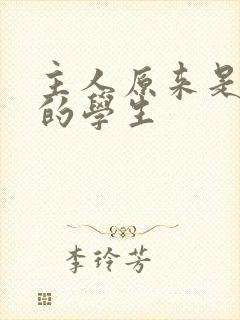 主人原来是
的學生
李玲芳